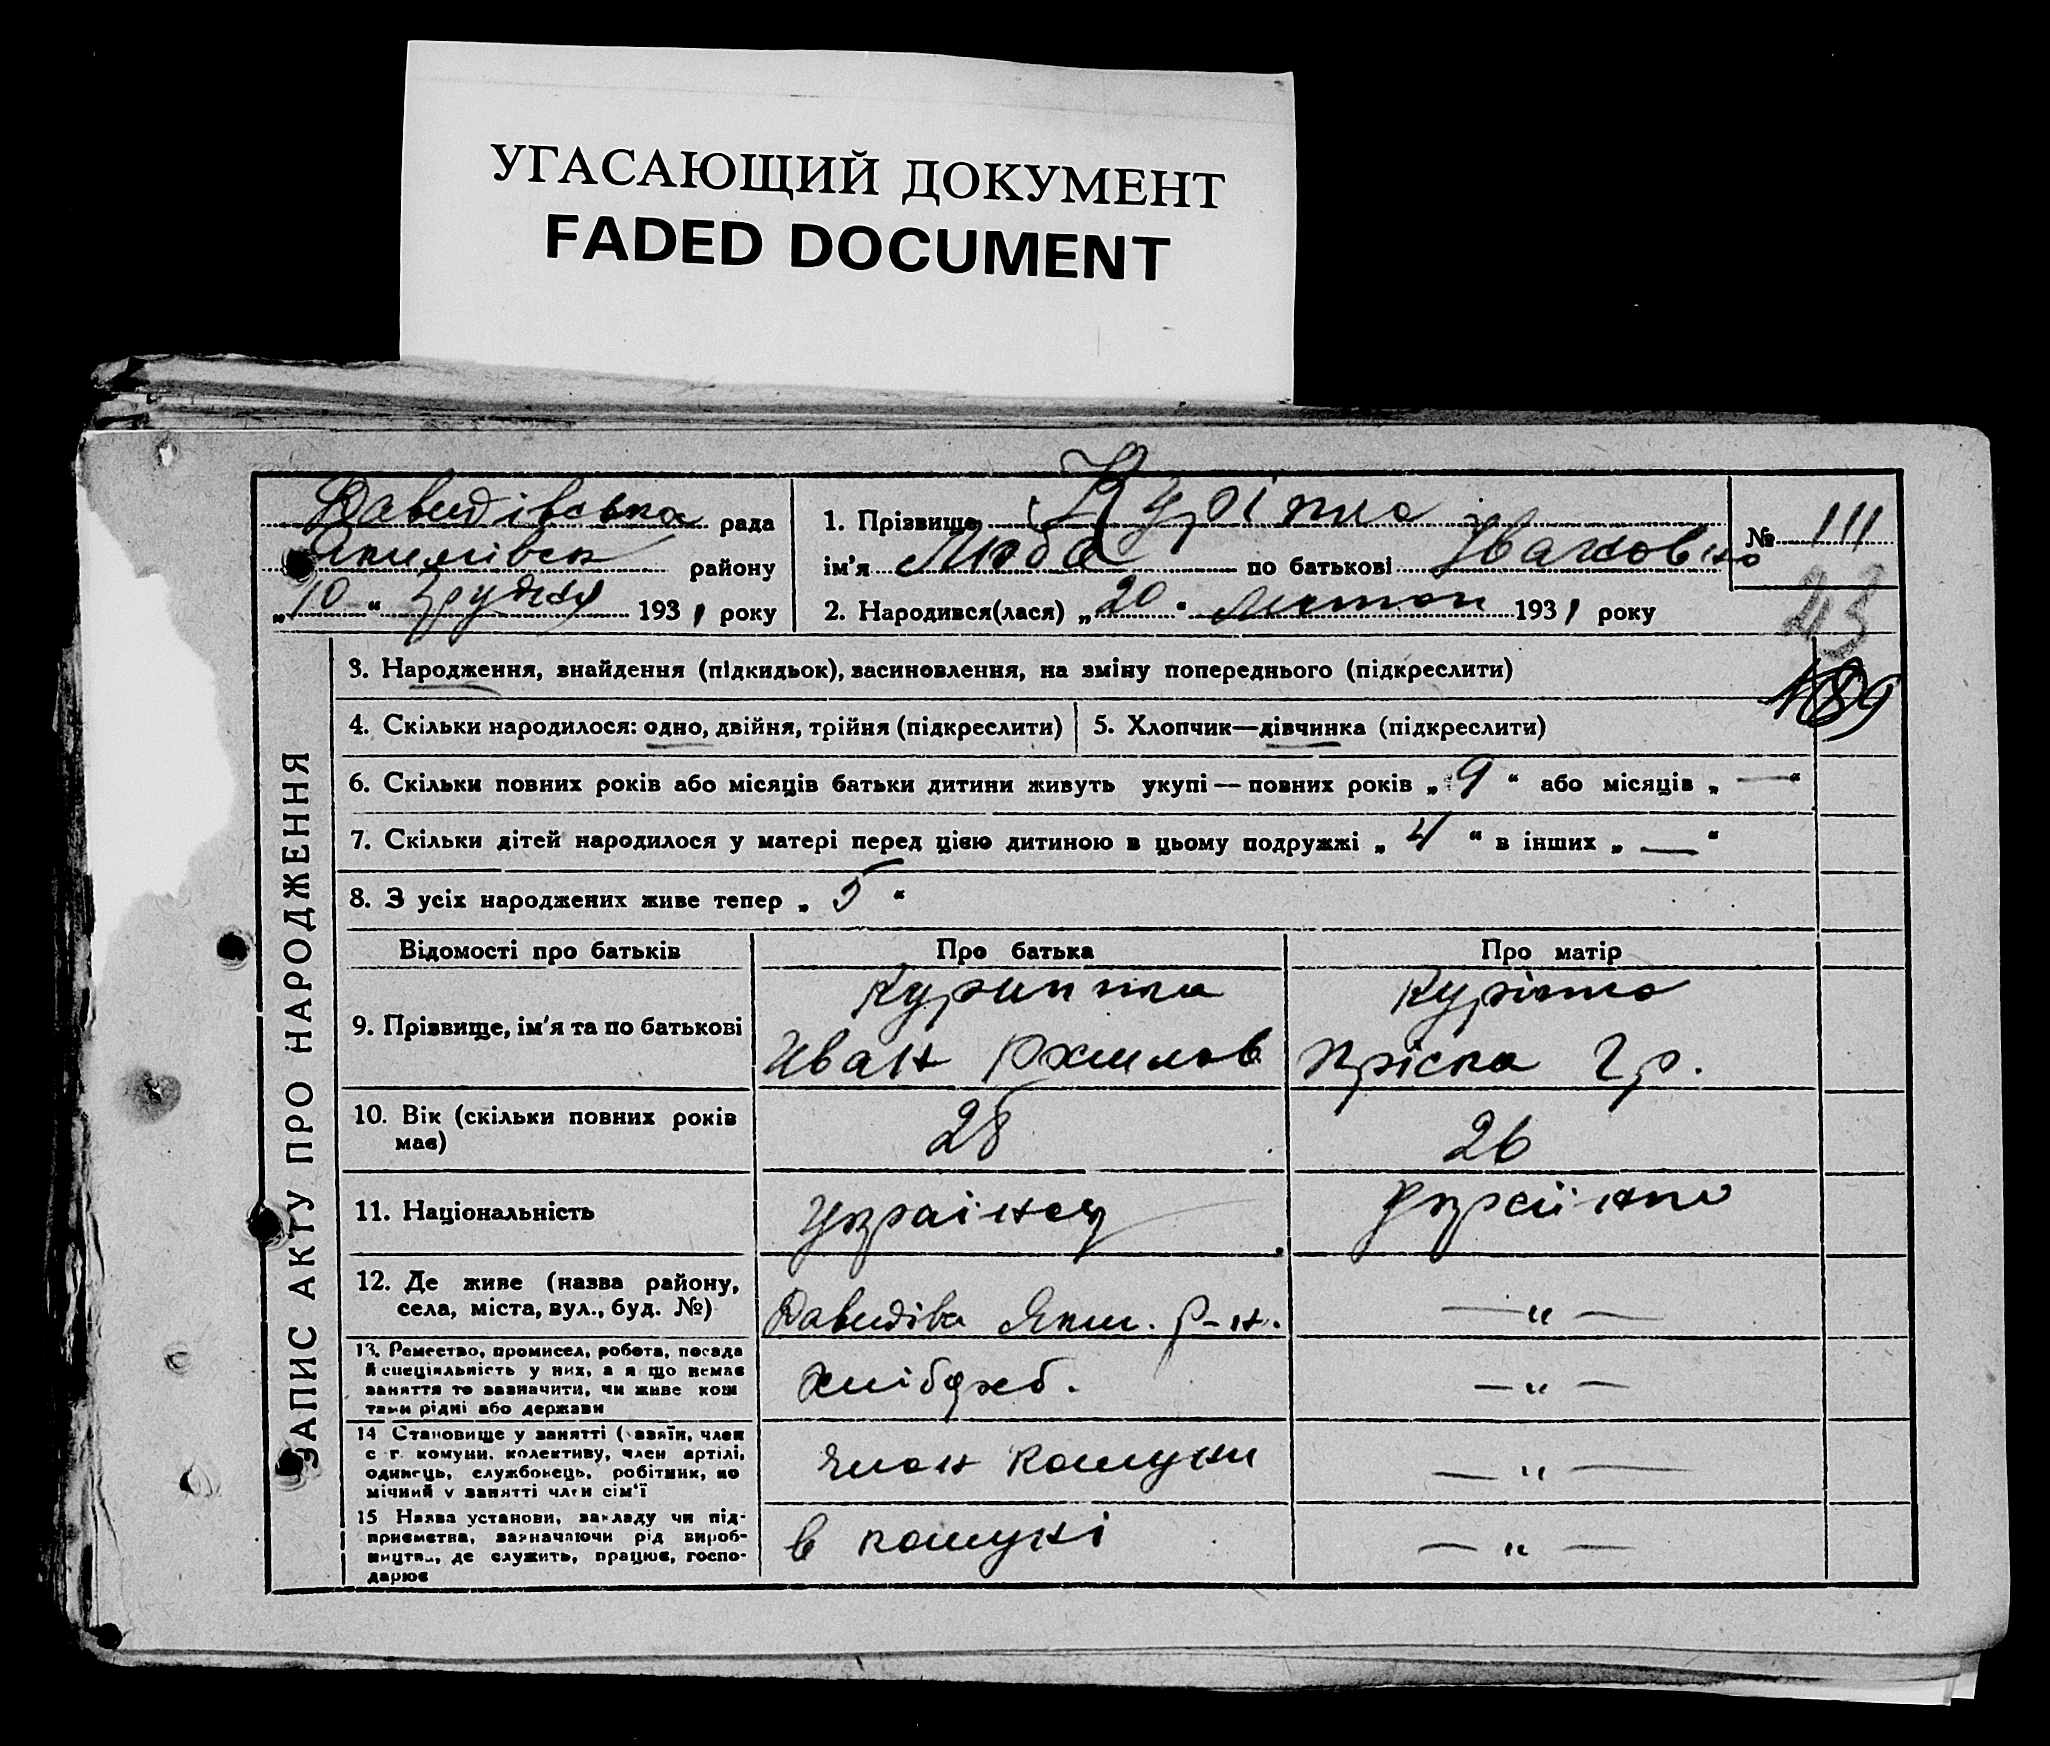 УГАСАЮЩИЙ ДОКУМЕНТ
FADED DOCUMENT
Давидівська рада
Якимівськ району
„10“ грудня 1931 року
1. Прізвище Куріпка
ім'я Люба по батькові Івановна
2. Народився(лася) „20“ 1931 року
№ 111
43
189
ЗАПИС АКТУ ПРО НАРОДЖЕННЯ
3. Народження, знайдення (підкидьок), васиновлення, на зміну попереднього (підкреслити)
4. Скільки народилося: одно, двійня, трійня (підкреслити)
5. Хлопчик—дівчинка (підкреслити)
6. Скільки повних років або місяців батьки дитини живуть укупі — повних років „9“ або місяців „—“
7. Скільки дітей народилося у матері перед цією дитиною в цьому подружжі „4“ в інших „—“
8. З усіх народжених живе тепер „5“
Відомості про батьків
Про батька
Про матір
9. Прізвище, ім'я та по батькові
Курипка
Иван
Куріпка
Пріска Гр.
10. Вік (скільки повних років
має)
28
26
11. Національність
Українец
Українка
12. Де живе (назва району,
села, міста, вул., буд. №)
Давидівка Яким. р-н.
— „ —
13. Ремество, промисел, робота, посада
й спеціяльність у них, а якщо немає
заняття то зазначити, чи живе кош
тами рідні або держави
Хлібороб.
— „ —
14 Становище у занятті (хазяїн, член
с г. комуни, колективу, член артілі,
одинець, службовець, робітник, по
мічний у занятті член сім'ї
Член комуни
— „ —
15 Назва установи, закладу чи під-
приємства, зазначаючи рід вироб-
ництва, де служить, працює, госпо-
дарює
в комуні
— „ —